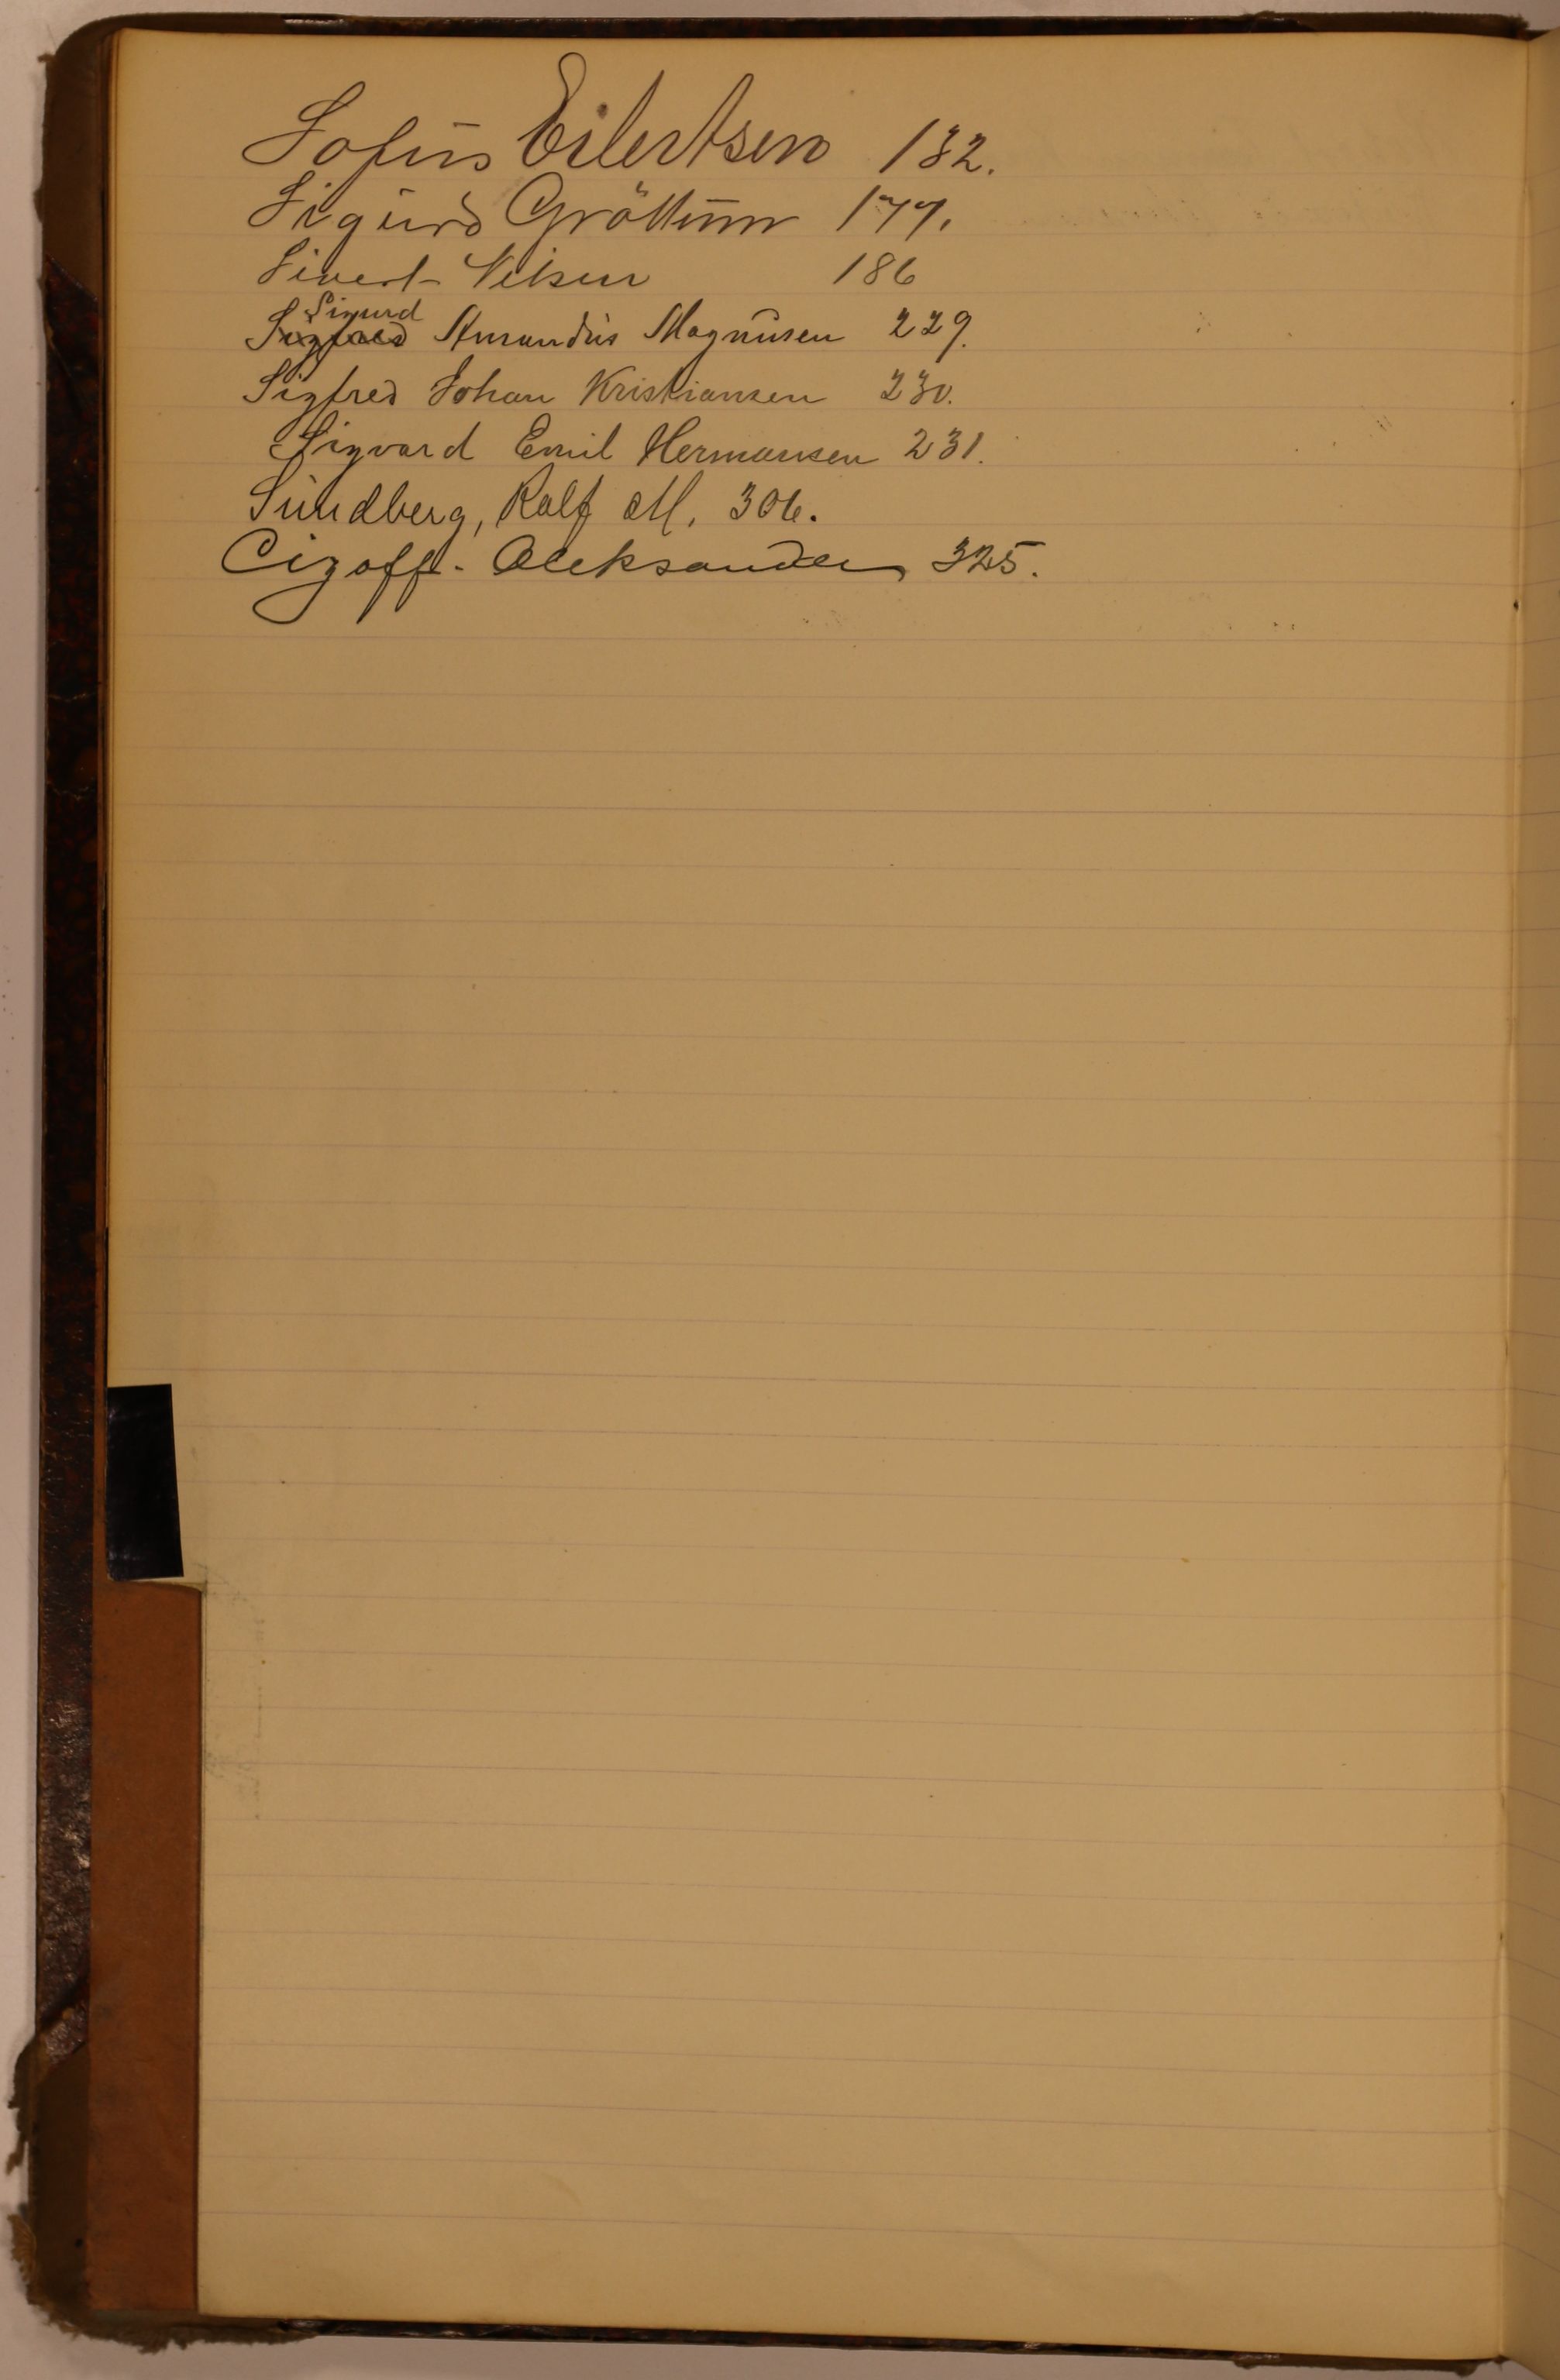 Sofus Eilertsen 132.
Sigurd Gröttum 177.
Sivert Nilsen 186
Sigurd
Sigfred Amandus Magnusen 229.
Sigfred Johan Kristiansen 230.
Sigvard Emil Hermansen 231.
Sundberg, Ralf M. 306.
Cizoff. Aleksander 325.